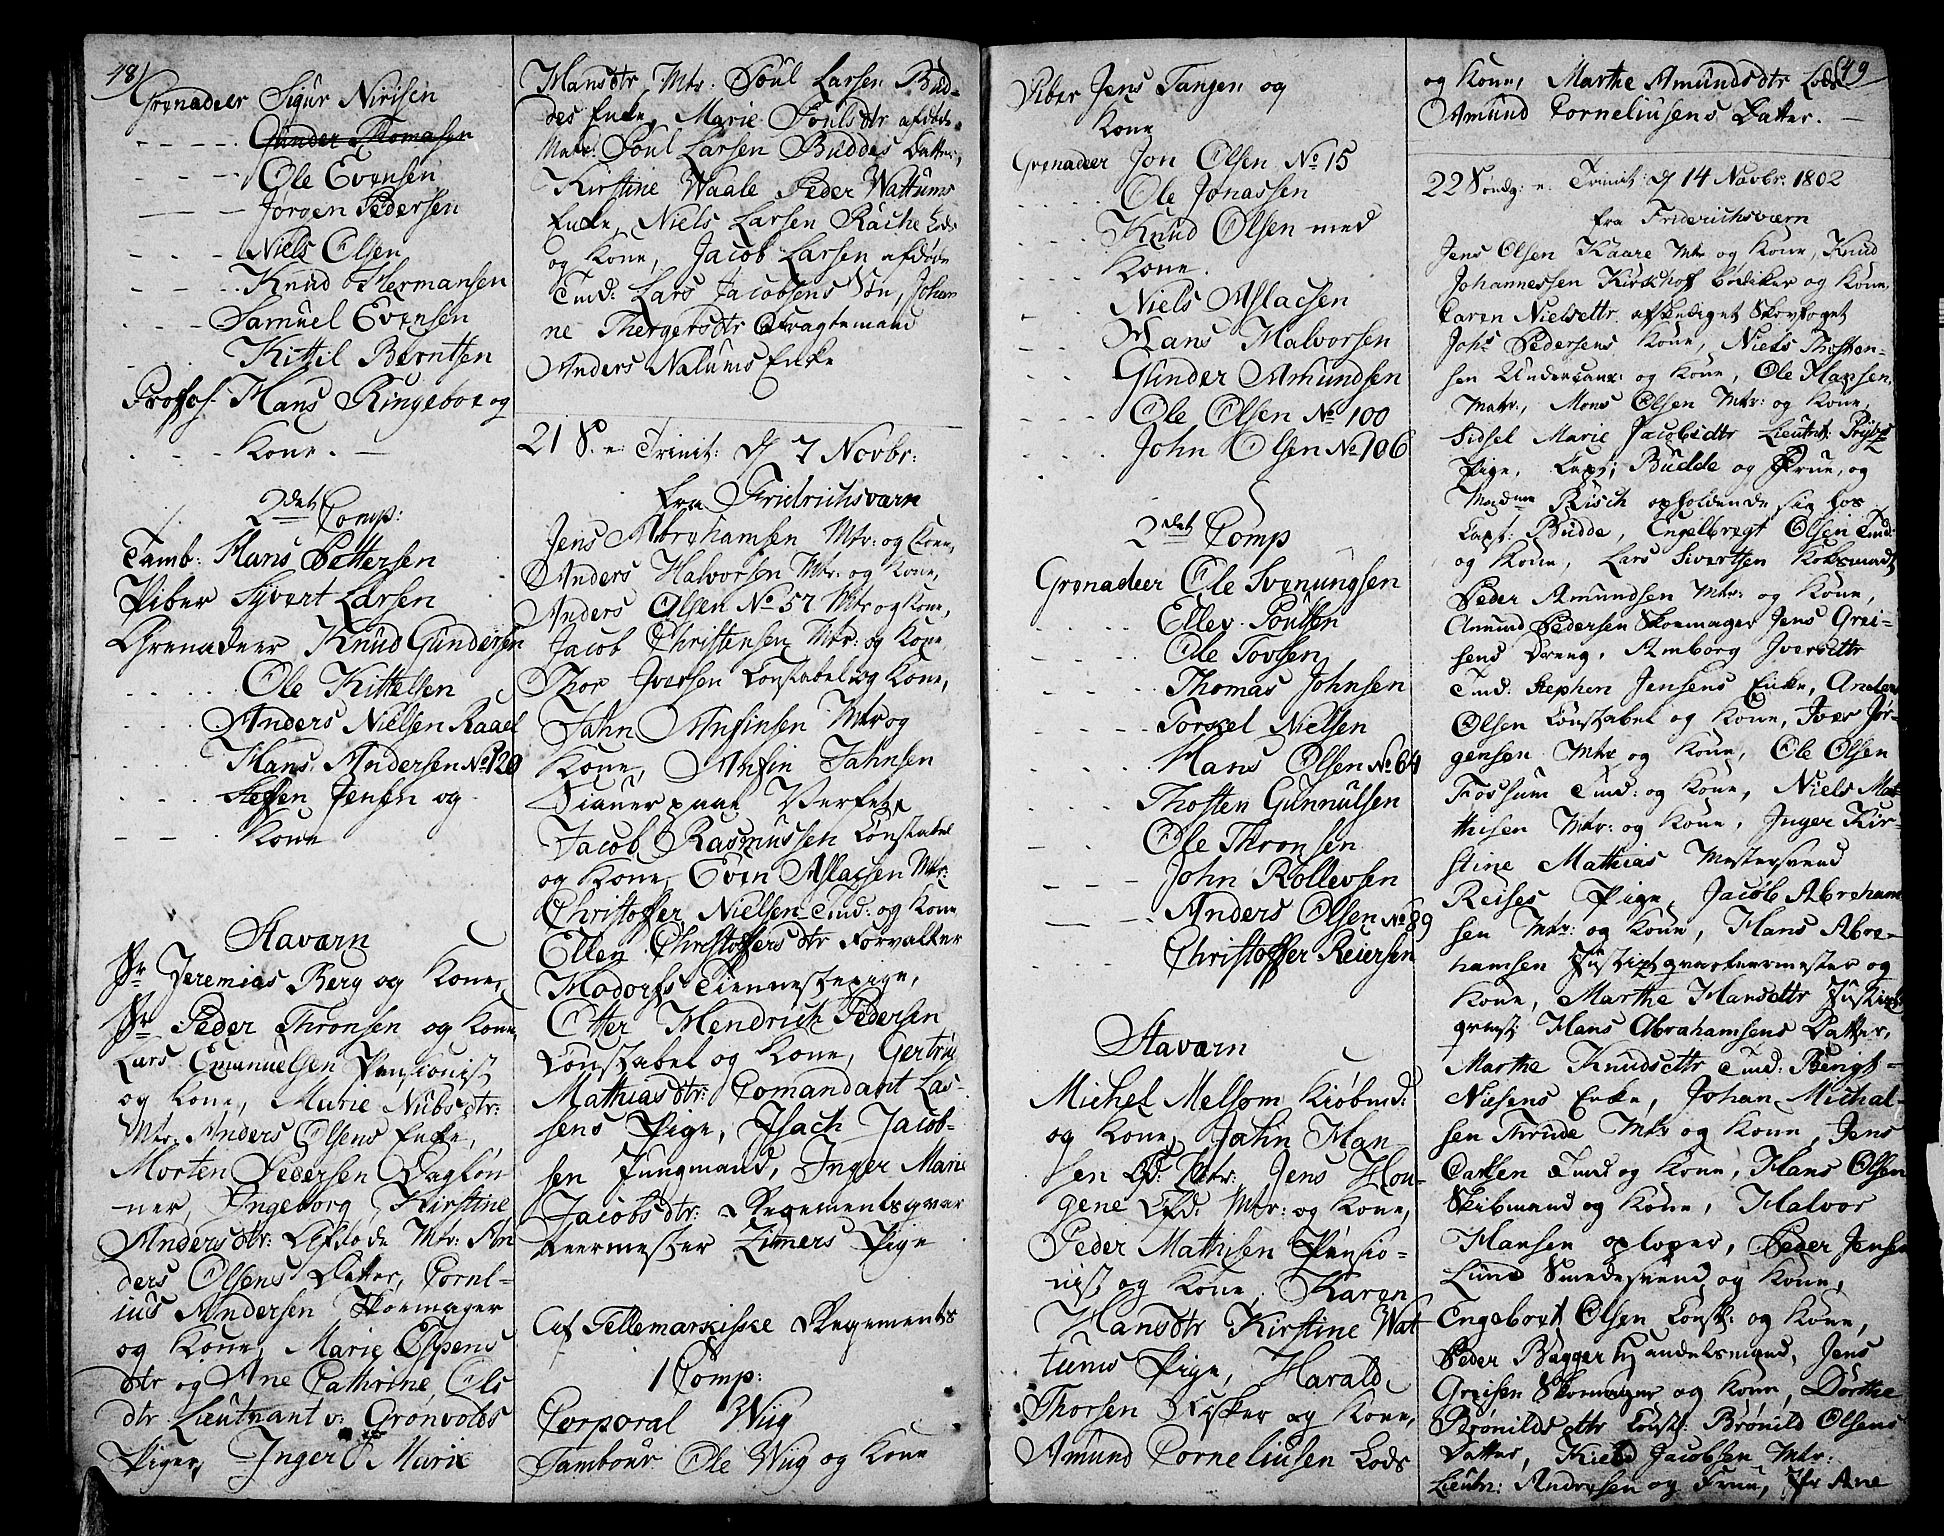 48)
Grenadeer Sigur Nirisen
- - - - - Gunder Thomasen
- - - - Ole Evensen
- - - Jørgen Pedersen
- - - Niels Olsen
- - - Knud Hermansen
- - - Samuel Evensen
Kittil Berntsen
Profos: Hans Ringeboe og
- - - Kone. -
2det Comp:
Tamb: Hans Pettersen
Piber Syvert Larsen
Grenadeer Knud Gundersen
- - - - Ole Kittelsen
- - - Anders Nielsen Raael
- - - Hans Andersen No 120
- - - Steffen Jensen og
- - - Kone
Staværn
Sr Jeremias Berg og Kone,
Sr Peder Thronsen og Kone
Lars Emanuelsen Pensionist
og Kone, Marie Nubsdtr:
Mtr: Anders Olsens Enke,
Morten Pedersen Dagløn-
ner, Ingeborg Kirstine
Andersdtr: Afdøde Mtr: An
ders Olsens Datter, Cornl-
ius Andersen Skomager
og Kone, Marie Espens
dtr og Ane Cathrine Ols
dtr Lieutnant v: Grønvolds
Piger, Inger Marie
Hansdtr Mtr: Poul Larsen Bud-
des Enke, Marie Poulsdtr afdøde
Matr: Poul Larsen Buddes Datter,
Kirstine Waale Peder Wattums
Enke, Niels Larsen Rache Lods
og Kone, Jacob Larsen afdøde
Tmd: Lars Jacobsens Søn, Johan
ne Thergersdtr Fragtemand
Anders Nalums Enke
21 S. e: Trinit: d 7 Novbr:
fra Fridrichsværn
Jens Abrahamsen Mtr: og Kone,
Anders Halvorsen Mtr: og Kone,
Anders Olsen No 57 Mtr og Kone,
Jacob Christensen Mtr: og Kone
Thor Iversen Constabel og Kone,
Jahn Anfinsen Mtr og
Kone, Anfin Jahnsen
paa Verfet,
Jacob Rasmussen Constabel
og Kone, Even Aslacsen Mtr:
Christoffer Nielsen Tmd: og Kone
Ellen Christoffersdtr Forvalter
Modorfs Tiennestepige,
Otter Hendrich Pedersen
Constabel og Kone, Gertrue
Mathiasdtr: Comandant Las-
sens Pige, Isach Jacob-
sen Jungmand, Inger Marie
Jacobsdtr: Regementsqvar
teermester Zitners Pige
Af Tellemarkiske Regements
1 Comp:
Corporal Wiig
Tambour Ole Wiig og Kone
Piber Jens Tangen og
Kone
Grenadeer Jon Olsen No 15
- - - - Ole Jonassen
- - - Knud Olsen med
- - - Kone.
- - - Niels Aslacsen
- - - Hans Halvorsen
- - - Gunder Amundsen
- - - Ole Olsen No 100
- - - John Olsen No 106
2det Comp
Grenadeer Ole Svenungsen
- - - - Ellev Poulsen
- - - - Ole Tovsen
- - - - Thomas Johnsen
- - - - Torkel Nielsen
- - - - Hans Olsen No 64
- - - - Thosten Gunnulsen
- - - Ole Thronsen
- - - John Rollevsen
- - - Anders Olsen No 89
- - - Christoffer Reiersen
Staværn
Michel Melsom Kiøbmd:
og Kone, Jahn Han-
sen Afd: Mtr: Jens Hou-
gene Afd: Mtr: og Kone,
Peder Mathisen Pensio-
nist og Kone, Karen
Hansdtr Kirstine Wat
tums Pige, Harald
Thorsen Fisker og Kone,
Amund Corneliusen Lods
(49
og Kone, Marthe Amundsdtr Lods
Amund Corneliusens Datter. -
22 Søndg: e: Trinit: d 14 Novbr: 1802
fra Friderichsværn
Jens Olsen Kaare Mtr og Kone, Knud
Johannessen Kirckhof Bødiker og Kone,
Caren Nielsdtr afskediget Skovfoget
Johs Pedersens Kone, Niels Thosten-
sen Undercan: og Kone, Ole Hansen,
Matr:, Mons Olsen Mtr: og Kone,
Sidsel Marie Jacobsdtr Lieutnt:
Pige, Capt: Budde og Frue, og
Madme Risch opholdende sig hos
Capt: Budde, Engelbregt Olsen Tmd:
og Kone, Lars Sivertsen Koksmadt
Peder Amundsen Mtr: og Kone,
Amund Pedersen Skomager Jens Grei-
sens Dreng, Amborg Iversdtr
Tmd: Stephen Jensens Enke, Anders
Olsen Constabel og Kone, Iver Jør-
gensen Mtr og Kone, Ole Olsen
Fossum Tmd: og Kone, Niels Mat-
thisen Mtr: og Kone, Inger Kir-
stine Mathias Mestersvend
Reises Pige, Jacob Abraham
sen Mtr: og Kone, Hans Abra-
hamsen qvarteermester og
Kone, Marthe Hansdtr
Hans Abrahamsens Datter,
Marthe Knudsdtr Tmd: Bengt
Nilsens Enke, Johan Michal-
sen Thrude Mtr og Kone, Jens
Carlsen Tmd og Kone, Hans Olsen
Skibmand og Kone, Halvor
Hansen oploper, Peder Jensen
Lund Smedesvend og Kone,
Engebort Olsen Const: og Kone,
Peder Bagger Handelsmand, Jens
Greisen Skomager og Kone, Dorthe
Brønildsdtr Const: Brønild Olsens
Datter, Kield Jacobsen Mtr:
Lieutn: Andersen og Frue, Jfr Ane